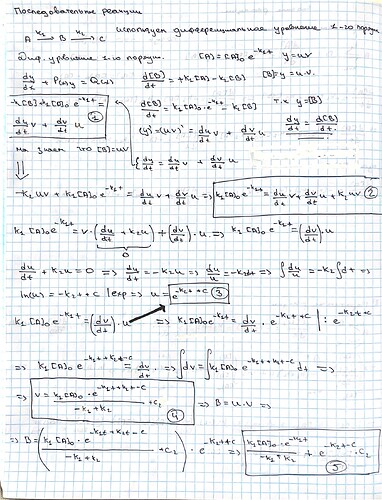 Последовательные реакции
A →k₁ B →k₂ C использует дифференциальное уравнение 1-го порядка
Диф. уравнение 1-го порядка. [A]=[A]₀e^{-k₁t} y=uv
dy/dx + P(x)y = Q(x) d[B]/dt = +k₁[A]-k₂[B] [B]=u·v.
-k[B]+k₁[A]₀e^{-k₁t} = d[B]/dt = k₁[A]₀·e^{-k₁t} - k₂[B] т.к y=[B]
du/dt v + dv/dt u ① (y'=(uv)' = du/dt v + dv/dt u dy/dt = d[B]/dt
мы знаем что [B]=uv { dy/dt = du/dt v + dv/dt u
⇓
-k₂uv + k₁[A]₀e^{-k₁t} = du/dt v + dv/dt u => k₁[A]₀e^{-k₁t} = du/dt v + dv/dt u + k₂uv ②
k₁[A]₀e^{-k₁t} = v·(du/dt + k₂u) + (dv/dt)·u. => k₁[A]₀e^{-k₁t} = (dv/dt)·u
0
du/dt + k₂u = 0 => du/dt = -k₂u => du/u = -k₂dt => ∫du/u = -k₂∫dt =>
ln(u) = -k₂t+c |exp => u = e^{-k₂t+c} ③
k₁[A]₀e^{-k₁t} = (dv/dt)·u => k₁[A]₀e^{-k₁t} = dv/dt · e^{-k₂t+c} | : e^{-k₂t+c}
=> k₁[A]₀e^{-k₁t+k₂t-c} = dv/dt. => ∫dv = ∫k₁[A]₀e^{-k₁t+k₂t-c} dt =>
=> v = k₁[A]₀·e^{-k₁t+k₂t-c}/(-k₁+k₂) + c₂ ④ => B=u·v =>
=> B = (k₁[A]₀·e^{-k₁t+k₂t-c}/(-k₁+k₂) + c₂) · e^{-k₂t+c} => k₁[A]₀·e^{-k₁t}/(-k₁+k₂) + e^{-k₂t+c}·c₂ ⑤